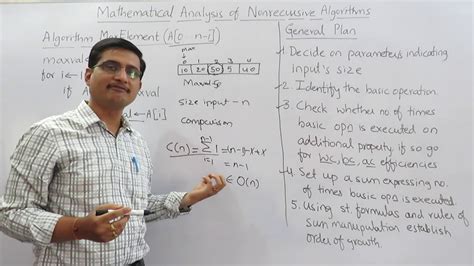 Mathematical Analysis of Nonrecursive Algorithms
Algorithm MaxElement (A[0...n-1])
maxval
for i ← 1
if A
maxval
val ← A[i]
max
0 1 2 3 4
10 20 50 5 40
Maxval = 50
size input - n
Comparison
C(n) = ∑ 1 = n-1-1+1
n-1
i=1
= n-1
∈ O(n)
General Plan
1. Decide on parameters indicating
input's size
2. Identify the basic operation.
3. Check whether no of times
basic opn is executed on
additional property if so go
for wc, bc, ac efficiencies
4. Set up a sum expressing no. of
times basic opn is executed.
5. Using st. formulas and rules of
sum manupulation establish
order of growth.